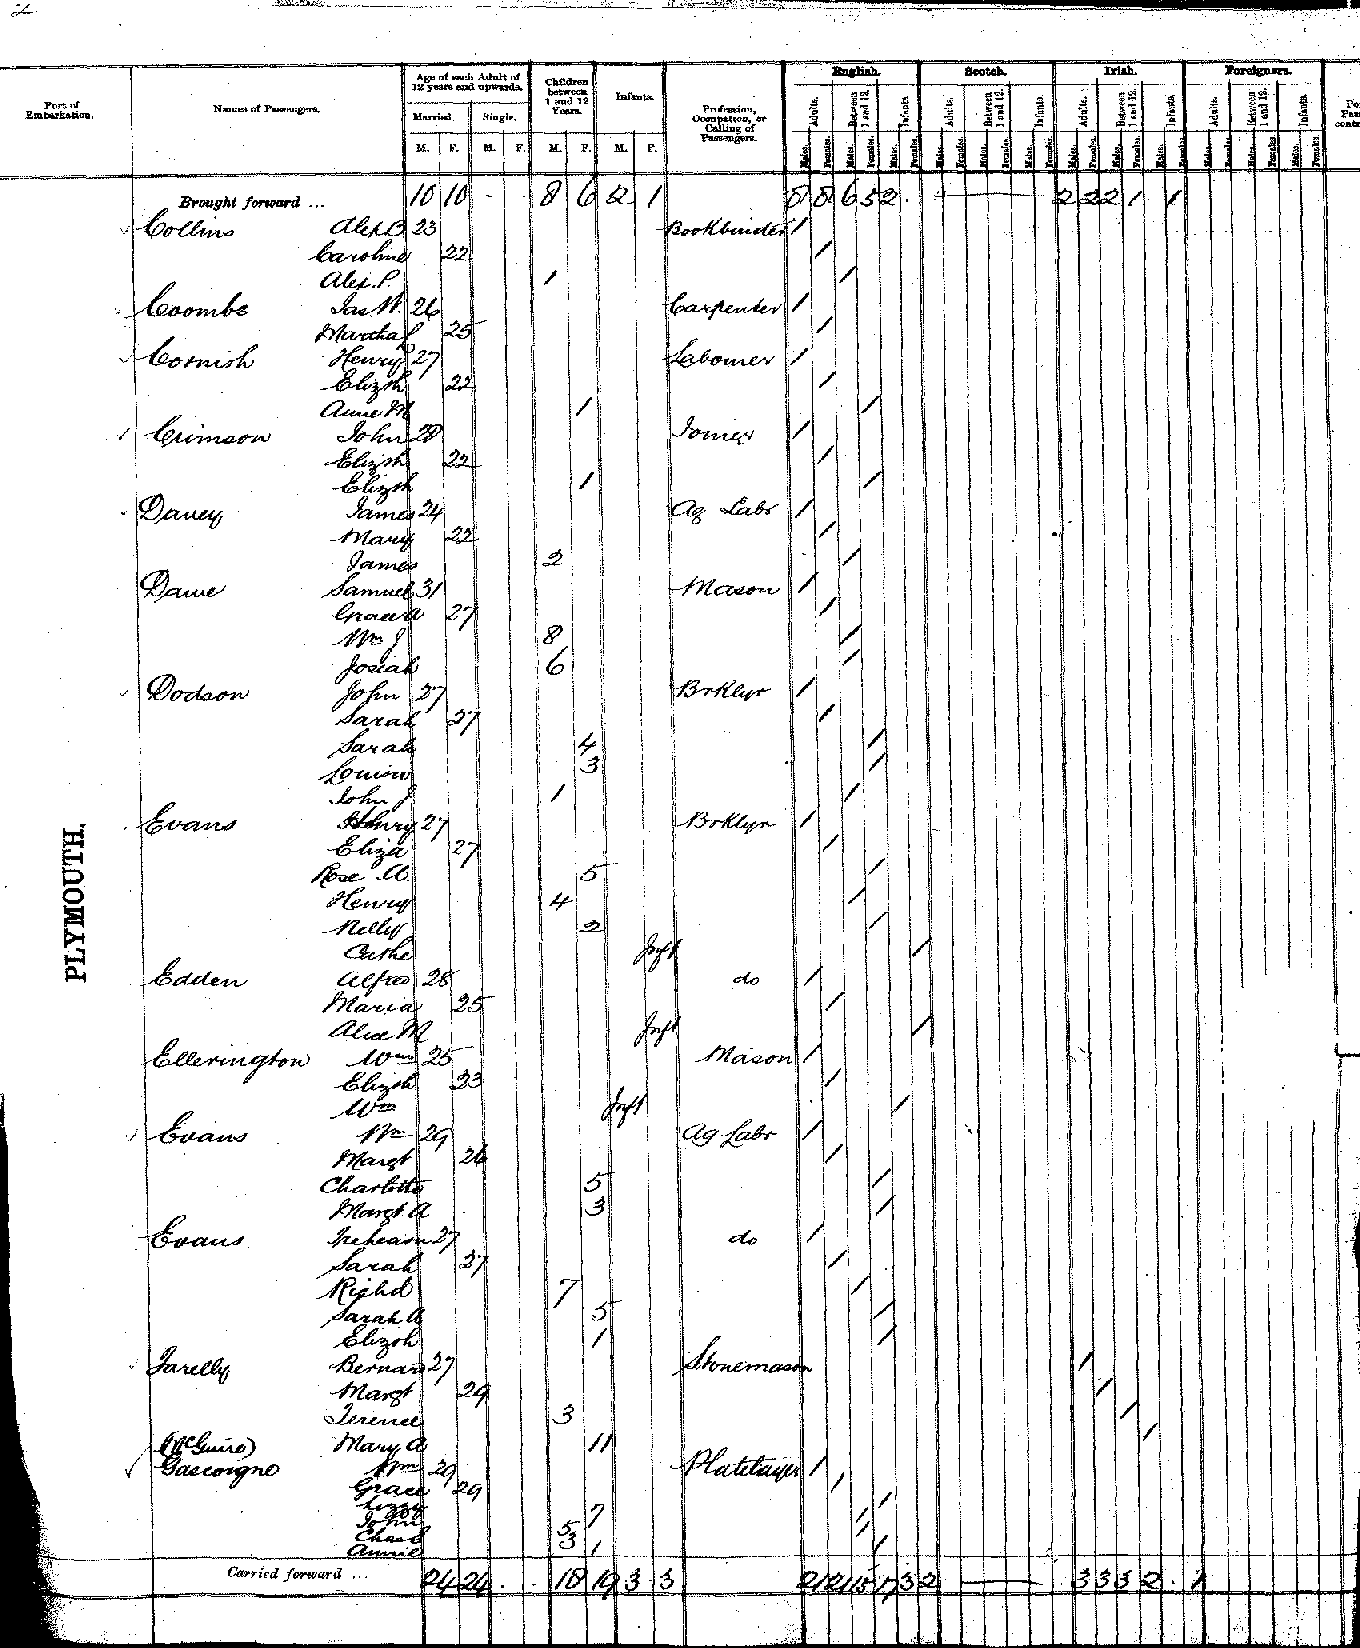 Port of Embarkation. Names of Passengers. Age of each Adult of 12 years and upwards. Children between 1 and 12 Years. Infants. Profession, Occupation, or Calling of Passengers. English. Scotch. Irish. Foreigners.
Married. Single. Adults. Between 1 and 12. Infants. Adults. Between 1 and 12. Infants. Adults. Between 1 and 12. Infants. Adults. Between 1 and 12. Infants.
M. F. M. F. M. F. M. F. Males. Females. Males. Females. Males. Females. Males. Females. Males. Females. Males. Females. Males. Females. Males. Females. Males. Females. Males. Females. Males. Females. Males. Females.
Brought forward ... 10 10 - 8 6 2 1 8 8 6 5 2 2 2 2 1 1
Collins Alex B 23 Bookbinder /
Caroline 22 /
Alex. P. 1 /
Coombe Jas W. 26 Carpenter /
Martha J 25 /
Cornish Henry 27 Labourer /
Elizth 22 /
Annie M 1 /
Crimson John 28 Joiner /
Elizth 22 /
Elizth 1 /
Davey James 24 Ag Labr /
Mary 22 /
James 2 /
Dawe Samuel 31 Mason /
Grace A 27 /
Wm J 8 /
Josiah 6 /
Dodson John 27 Brklyr /
Sarah 27 /
Sarah 4 /
Louisa 3 /
John J 1 /
Evans Henry 27 Brklyr /
Eliza 27 /
Rose A 5 /
Henry 4 /
Nelly 2 /
Cathe Inft /
Edden Alfred 28 do /
Maria 25 /
Alice M Inft /
Ellerington Wm 25 Mason /
Elizth 23 /
Wm Inft /
Evans Wm 29 Ag Labr /
Margt 26 /
Charlotte 5 /
Margt A 3 /
Evans 27 do /
Sarah 27 /
Richd 7 /
Sarah A 5 /
Elizth 1 /
Farelly Bernard 27 Stonemason /
Margt 29 /
Terence 3 /
(McGuire) Mary A 11 /
Gascoigne Wm 29 Platelayer /
Grace 29 /
Lizzy 7 /
John 5 /
Chasd 3 /
Annie 1 /
Carried forward ... 24 24 18 19 3 3 21 21 15 17 3 2 3 3 3 2 1
PLYMOUTH.